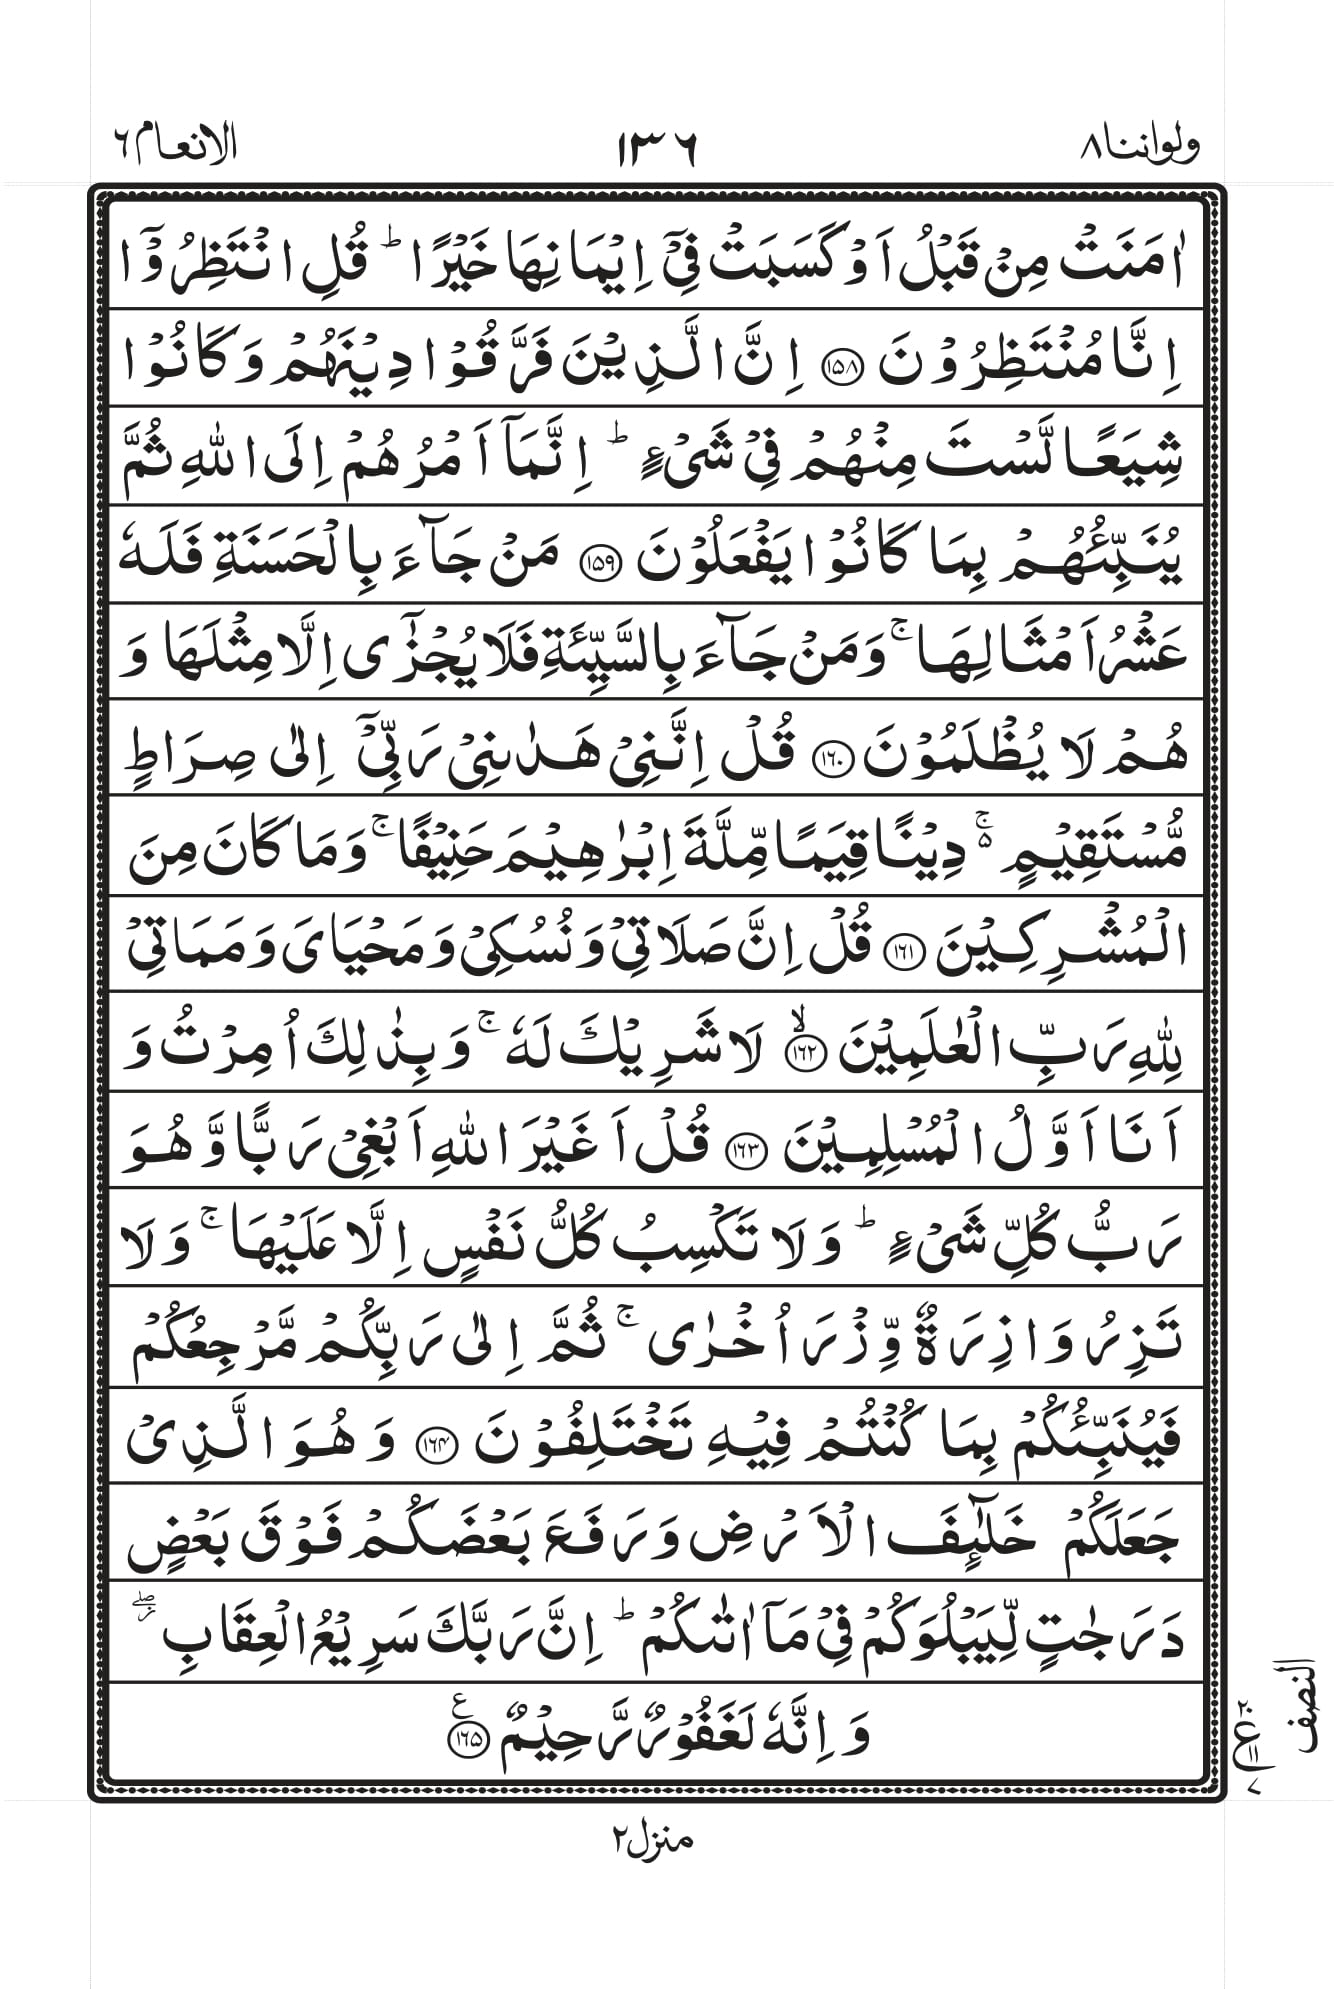 ولواننا ٨
١٣٦
الانعام ٦
اٰمَنَتْ مِنْ قَبْلُ اَوْ كَسَبَتْ فِیْۤ اِیْمَانِهَا خَیْرًا ؕ قُلِ انْتَظِرُوْۤا
اِنَّا مُنْتَظِرُوْنَ ۝١٥٨ اِنَّ الَّذِیْنَ فَرَّقُوْا دِیْنَهُمْ وَ كَانُوْا
شِیَعًا لَّسْتَ مِنْهُمْ فِیْ شَیْءٍ ؕ اِنَّمَاۤ اَمْرُهُمْ اِلَی اللّٰهِ ثُمَّ
یُنَبِّئُهُمْ بِمَا كَانُوْا یَفْعَلُوْنَ ۝١٥٩ مَنْ جَآءَ بِالْحَسَنَةِ فَلَهٗ
عَشْرُ اَمْثَالِهَا ۚ وَ مَنْ جَآءَ بِالسَّیِّئَةِ فَلَا یُجْزٰۤی اِلَّا مِثْلَهَا وَ
هُمْ لَا یُظْلَمُوْنَ ۝١٦٠ قُلْ اِنَّنِیْ هَدٰىنِیْ رَبِّیْۤ اِلٰی صِرَاطٍ
مُّسْتَقِیْمٍ ۚ۬ دِیْنًا قِیَمًا مِّلَّةَ اِبْرٰهِیْمَ حَنِیْفًا ۚ وَ مَا كَانَ مِنَ
الْمُشْرِكِیْنَ ۝١٦١ قُلْ اِنَّ صَلَاتِیْ وَ نُسُكِیْ وَ مَحْیَایَ وَ مَمَاتِیْ
لِلّٰهِ رَبِّ الْعٰلَمِیْنَ ۙ۝١٦٢ لَا شَرِیْكَ لَهٗ ۚ وَ بِذٰلِكَ اُمِرْتُ وَ
اَنَا اَوَّلُ الْمُسْلِمِیْنَ ۝١٦٣ قُلْ اَغَیْرَ اللّٰهِ اَبْغِیْ رَبًّا وَّ هُوَ
رَبُّ كُلِّ شَیْءٍ ؕ وَ لَا تَكْسِبُ كُلُّ نَفْسٍ اِلَّا عَلَیْهَا ۚ وَ لَا
تَزِرُ وَازِرَةٌ وِّزْرَ اُخْرٰی ۚ ثُمَّ اِلٰی رَبِّكُمْ مَّرْجِعُكُمْ
فَیُنَبِّئُكُمْ بِمَا كُنْتُمْ فِیْهِ تَخْتَلِفُوْنَ ۝١٦٤ وَ هُوَ الَّذِیْ
جَعَلَكُمْ خَلٰٓىِٕفَ الْاَرْضِ وَ رَفَعَ بَعْضَكُمْ فَوْقَ بَعْضٍ
دَرَجٰتٍ لِّیَبْلُوَكُمْ فِیْ مَاۤ اٰتٰىكُمْ ؕ اِنَّ رَبَّكَ سَرِیْعُ الْعِقَابِ ۖؗ
وَ اِنَّهٗ لَغَفُوْرٌ رَّحِیْمٌ ۝١٦٥ ع
النصف
٢٠
ع
١١
٧
منزل ٢